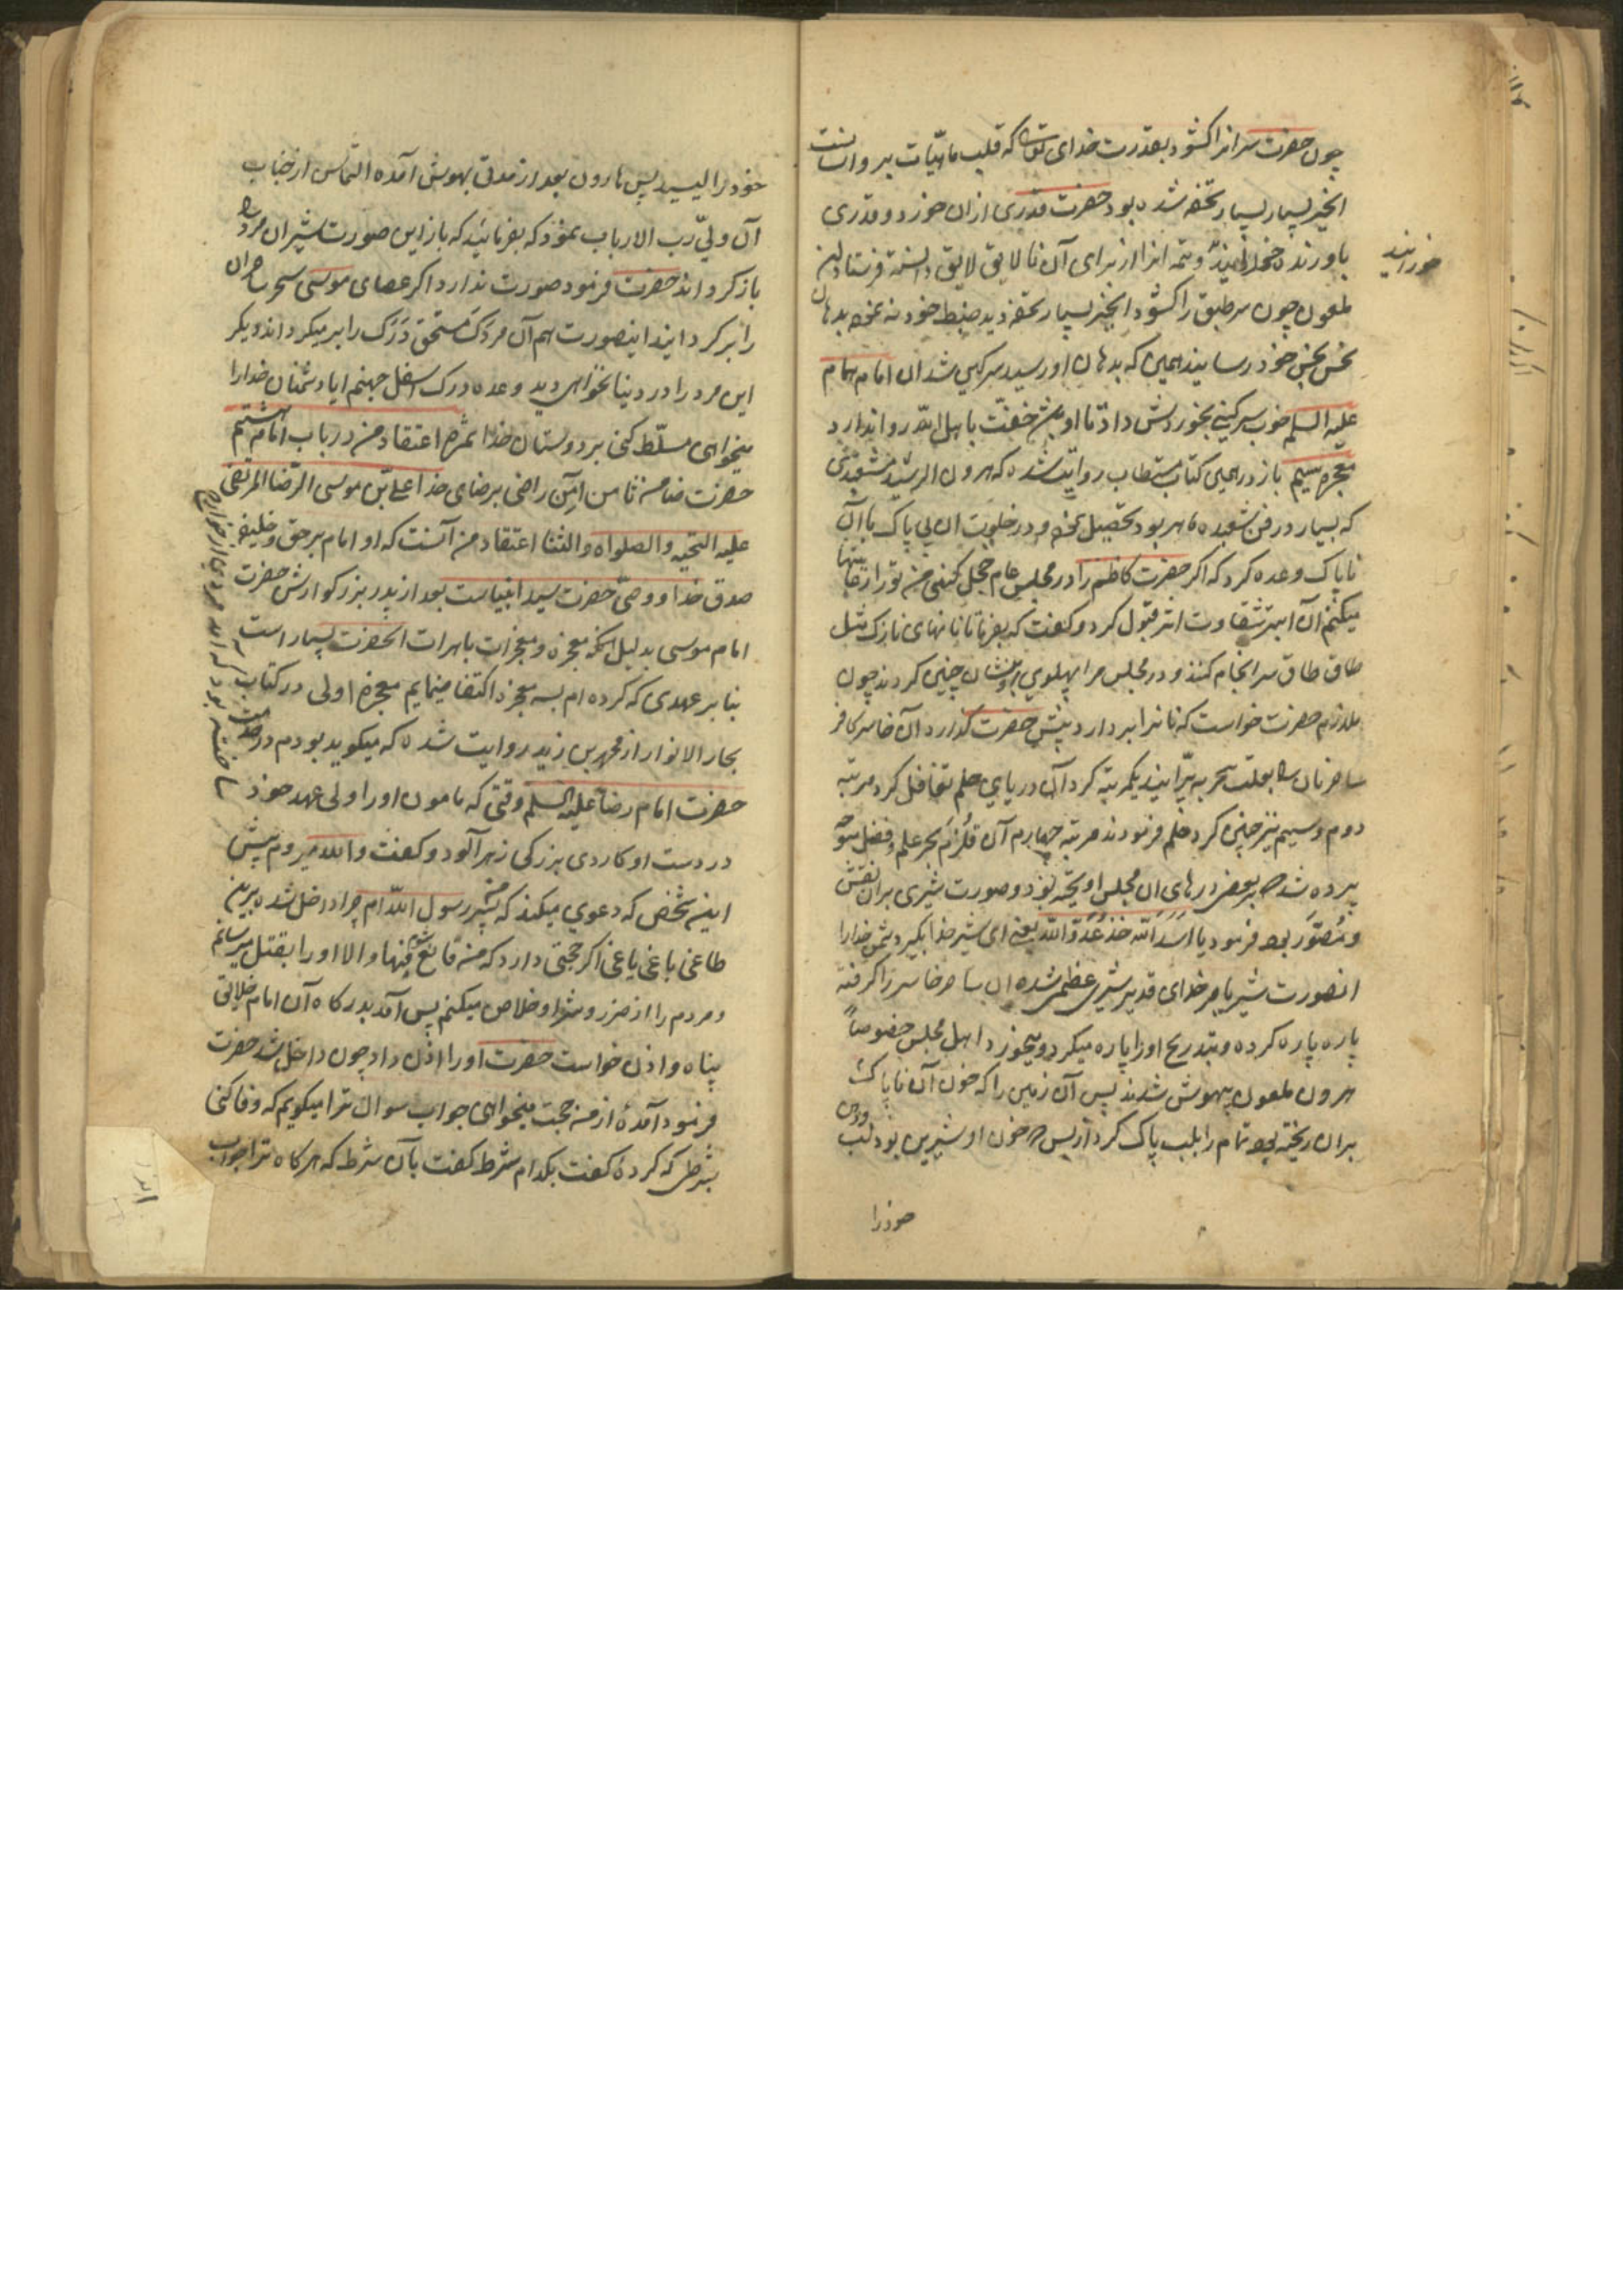 چون حضرت سر انرا کشود بقدرت خدای تعالی که قلب ماهیّات بر او آسانست
انجیر بسیار بسیار تحفه شده بود حضرت قدری ازان خورد و قدری
باورنده و تتمه انرا از برای آن نالایق لایق دانسته فرستاد این
ملعون چون سر طبق را کشود انجیر بسیار تحفه دید ضبط خود نه نموده بدهان
نحس نجس خود رسانید همین که بدهان او رسید سرکین شد ان امام همام
علیه السلم خوب سرکینی بخوردش داد تا او بیش خفّت باهل الله روا ندارد
معجزه سیم باز در همین کتاب مستطاب روایت شده که هرون الرشید مشعبدی
که بسیار در فن شعبده ماهر بود تحصیل نموده و در خلوت ان بی پاک با آن
ناپاک وعده کرد که اکر حضرت کاظم را در مجلس عام خجل کنی من تو را رعایتها
میکنم آن ابتر شقاوت اثر قبول کرد و کفت که بفرما تا نانهای نازک مثل
طاق طاق سرانجام کنند و در مجلس مرا پهلوی ایشان چنین کردند چون
ملازم حضرت خواست که نانرا بردارد پیش حضرت کذارد آن خاسر کافر
ساحر نان را بعلت سحر به پرّانید یکمرتبه کرد آن دریای حلم تغافل کرد مرتبه
دوم و سیم نیز چنین کرد حلم فرمودند مرتبه چهارم آن قلزم بحر علم و فضل متوجه
پرده شد که بر بعض درهای ان مجلس اویخته بود و صورت شیری بران نقش
و مُصَوَّر بود فرمود یا اَسَدَ الله خُذ عَدُوَّ الله یعنی ای شیر خدا بکیر دشمن خدا را
انصورت شیر بامر خدای قدیر شیری عظیم شده ان ساحر خاسر را کرفته
پاره پاره کرده و بتدریج او را پاره میکرد و میخورد اهل مجلس خصوصاً
هرون ملعون بیهوش شدند پس آن زمین را که خون آن ناپاک
بران ریخته بود تمام را بلب پاک کرد از بس که خون او شیرین بود لب و دهن
خود را
خورانید
خود را لیسید پس هارون بعد از مدتی بهوش آمده التماس از جناب
آن ولیّ ربّ الارباب نمود که بفرمائید که باز این صورت شیر ان مرد را
باز کرداند حضرت فرمود صورت ندارد اکر عصای موسی سحر ساحران
را بر کرداند اینصورت هم آن مردک مستحق دَرَک را بر میکرداند دیکر
این مرد را در دنیا نخواهی دید وعده درک اسفل جهنم ایا دشمنان خدا را
میخواهی مسلّط کنی بر دوستان خدا ثمره اعتقاد من در باب امام هشتم
حضرت ضامن ثامن امن راضی برضای خدا علیّ بن موسی الرّضا المرتضی
علیه التحیه والصلواه والثنا اعتقاد من آنست که او امام بر حق و خلیفه
صدق خدا و وصیّ حضرت سید انبیاست بعد از پدر بزرکوارش حضرت
امام موسی بدلیل انکه معجزه و معجزات باهرات انحضرت بسیار است
بنابر عهدی که کرده ام بسه معجزه اکتفا مینمایم معجزه اولی در کتاب
بحار الانوار از محمد بن زید روایت شده که میکوید بودم در خدمت
حضرت امام رضا علیه السلم وقتی که مامون او را ولی عهد خود
در دست او کاردی بزرکی زهر آلود و کفت والله میروم پیش
این شخص که دعوی میکند که من پسر رسول اللّه ام چرا داخل شده برین
طاغی باغی یاغی اکر حجتی دارد که من قانع شوم فبها و الا او را بقتل میرسانم
و مردم را از ضرر و شر او خلاص میکنم پس آمد بدرکاه آن امام خلایق
پناه و اذن خواست حضرت او را اذن داد چون داخل شد حضرت
فرمود آمدهٔ از من حجت میخواهی جواب سوال ترا میکویم که وفا کنی
بشرطی که کردهٔ کفت بکدام شرط کفت بآن شرط که هر کاه ترا جواب